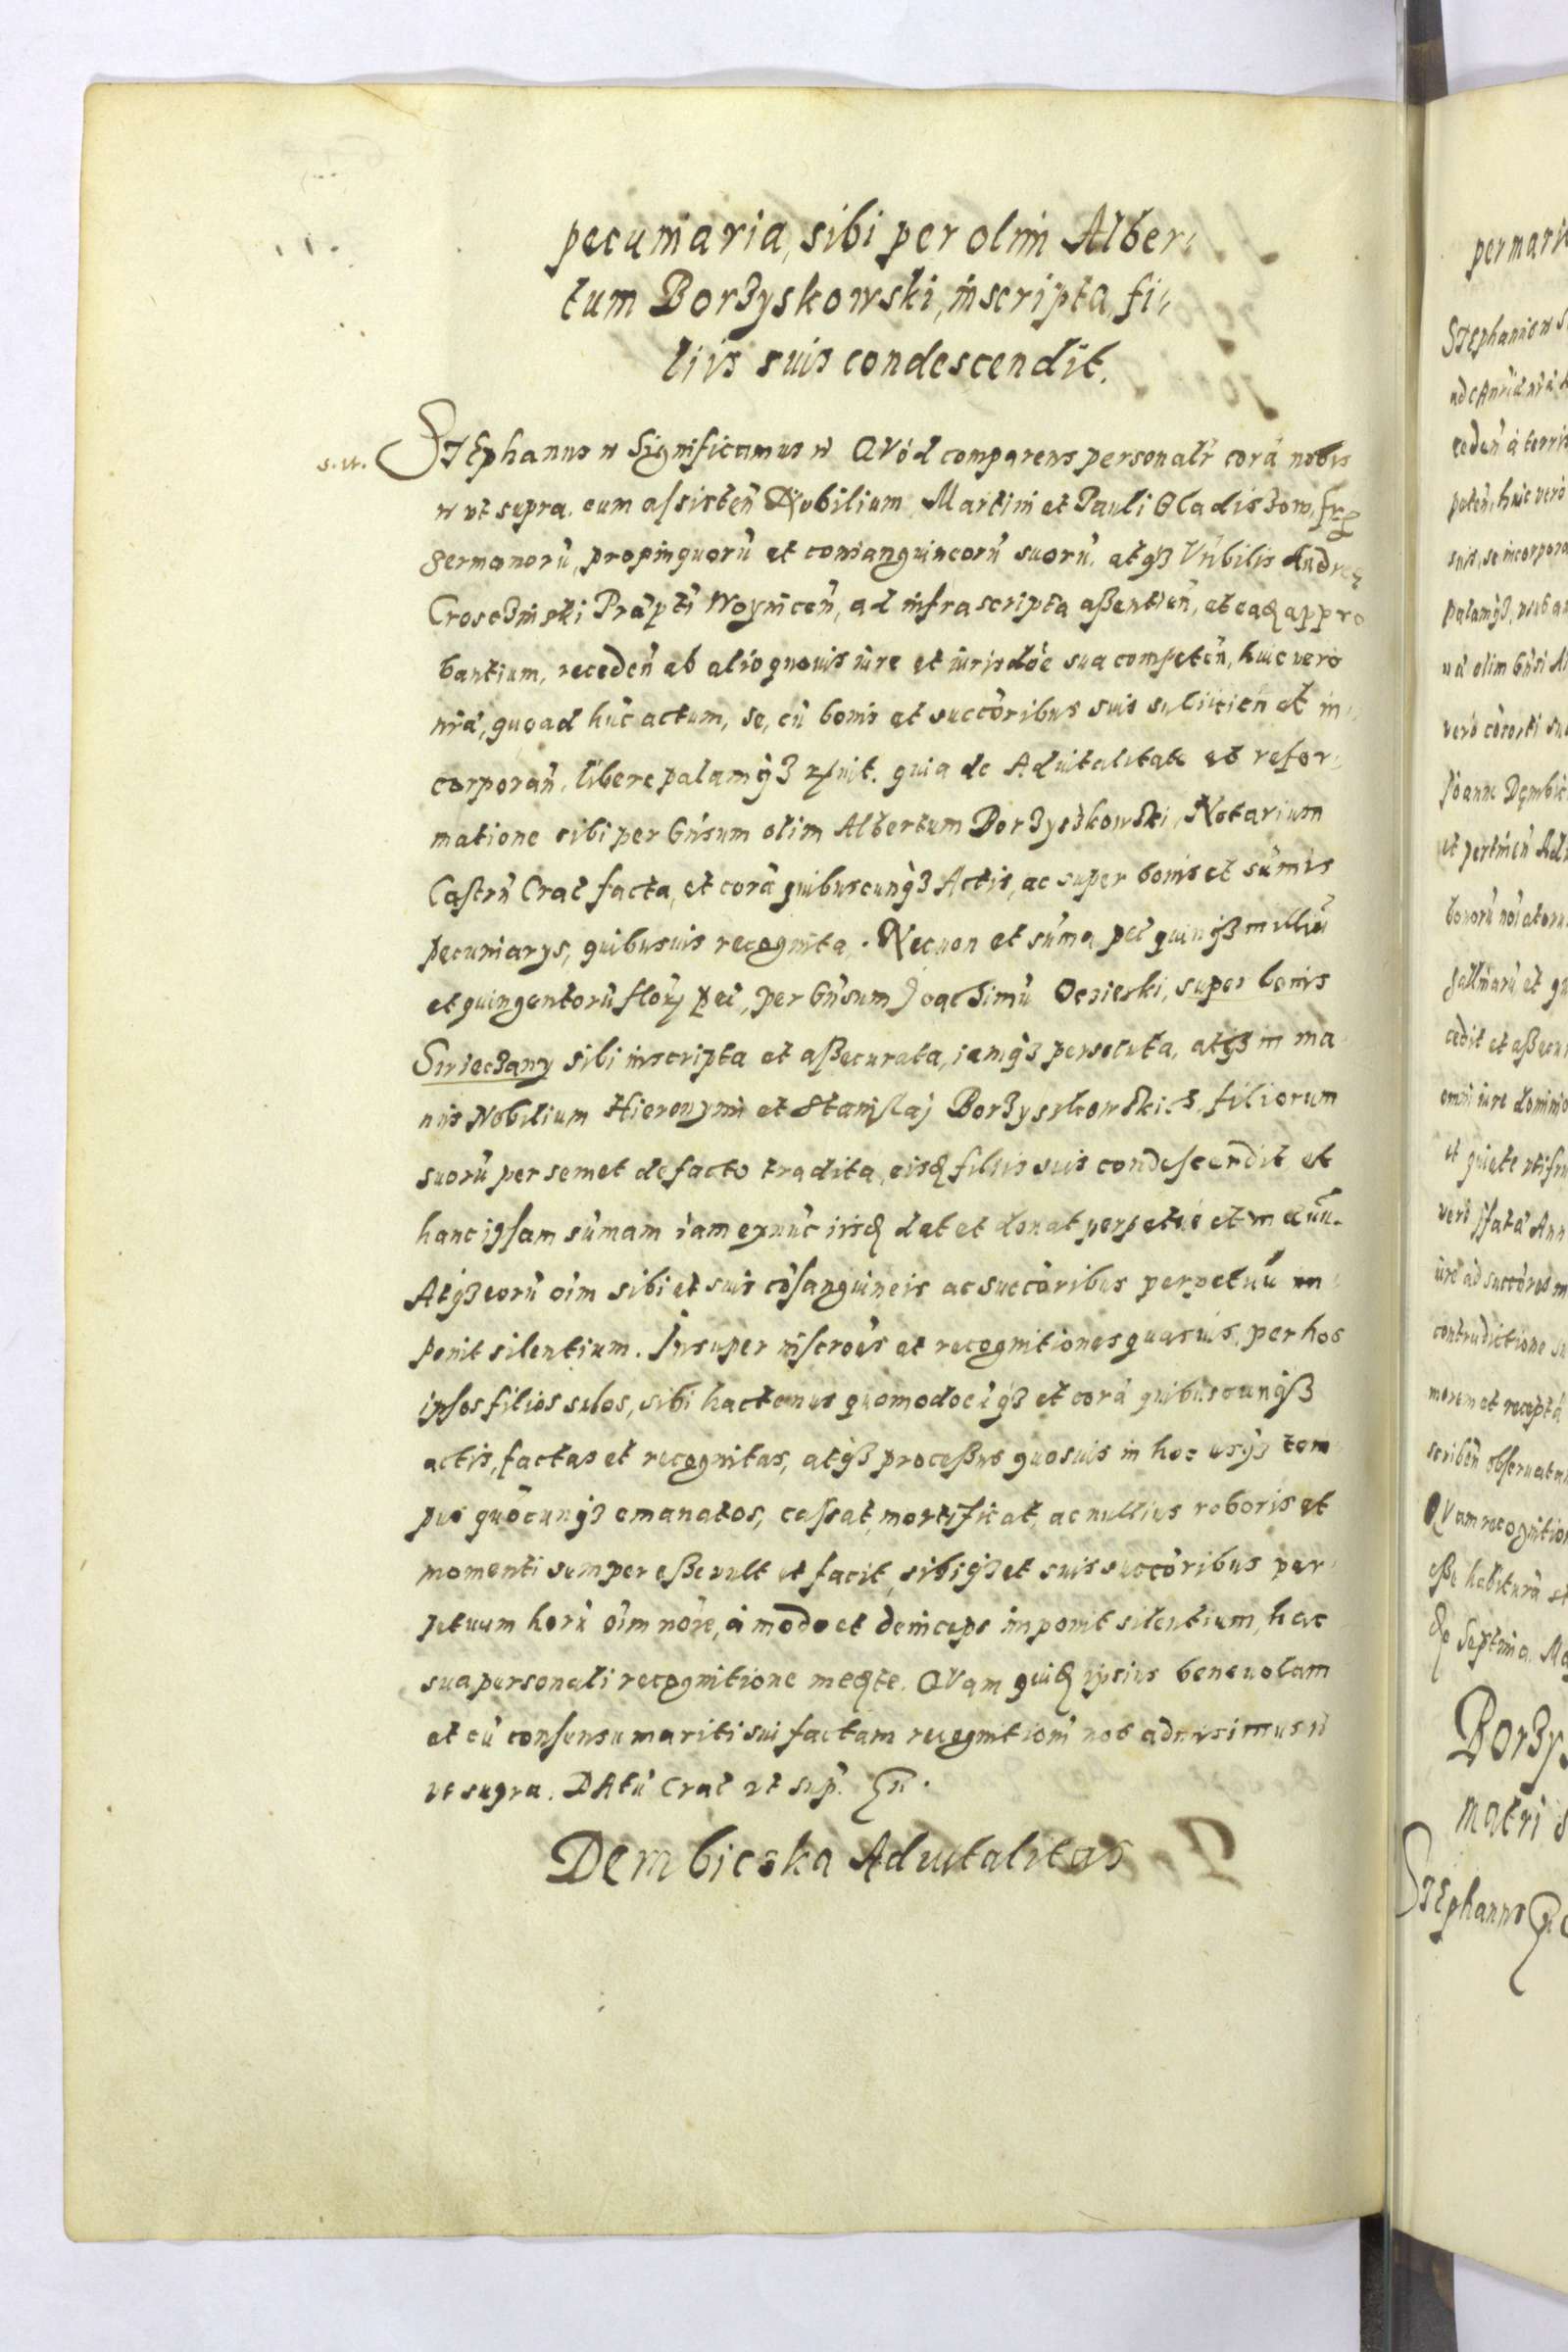 pecuniaria, sibi per olim Alber
tum Borzyskowski, inscripta, fi
liis suis condescendit.
s. u. STEphanus Significamus QVód comparens personalr corā nobis
ut supra, cum assisten Nobilium Martini et Pauli Gladiszow, frm
germanorū, propinquorū et consanguineorū suorū, atqз Nobilis Andreę
Crosczinski Praepti Woynicen, ad infrascripta assentien, et eaq appro
bantium, receden ab alio quouis iure et iurisdoe sua competen, huic vero
nrā, quoad hūc actum, se, cū bonis et succoribus suis subiicien et in
corporan, libere palamqз r/nuit. quia de Aduitalitate et refor
matione sibi per Gnsum olim Albertum Borzyszkowski, Notarium
Castrn Crac facta, et corā quibuscunqз Actis, ac super bonis et sūmis
pecuniarys, quibusuis recognita. Necnon et sūma pec quinqз milliū
et quingentorū flor pec, per Gnsum Joachimū Ocieski, super bonis
Swieczany sibi inscripta et assecurata, iamqз persoluta, atqз in ma
nus Nobilium Hieronymi et Stanislaj Borzyszkowskich, filiorum
suorū per semet de facto tradita, eisq filiis suis condescendit et
hanc ipsam sūmam iam exnūc iisq dat et donat perpetuè et in aeuū.
Atqз eorū oim sibi et suis cōsanguineis ac succoribus perpetuū im
ponit silentium. Insuper inscroēs et recognitiones quasuis, per hos
ipsos filios suos, sibi hactenus quomodocūqз et corā quibuscunqз
actis, factas et recognitas, atqз processus quosuis in hoc usqз tem
pus quōcunqз emanatos, cassat, mortificat, ac nullius roboris et
momenti semper esse vult et facit, sibiqз et suis succoribus per
petuum horū oim nōie, à modo et deinceps imponit silentium, hac
sua personali recognitione međte. QVam quiđ ipsius beneuolam
et cū consensu mariti sui factam recognitionē nos admisimus
ut supra. DAtū Crac ut sup.
Dembicska Aduitalitas